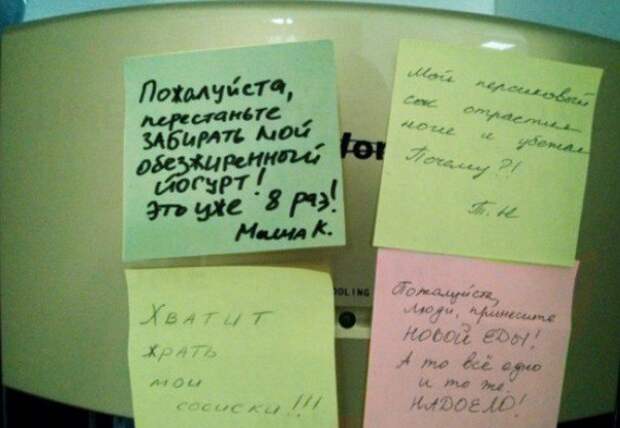 Пожалуйста,
перестаньте
ЗАБИРАТЬ МОЙ
обезжиренный
йогурт!
Это уже 8 раз!
Маша К.
Мой персиковый
сок отрастил
ноги и убежал
Почему?!
Т. Н
Хватит
жрать
мои
сосиски!!!
Пожалуйста,
люди, принесите
НОВОЙ ЕДЫ!
А то всё одно
и то же.
НАДОЕЛО!
OLING